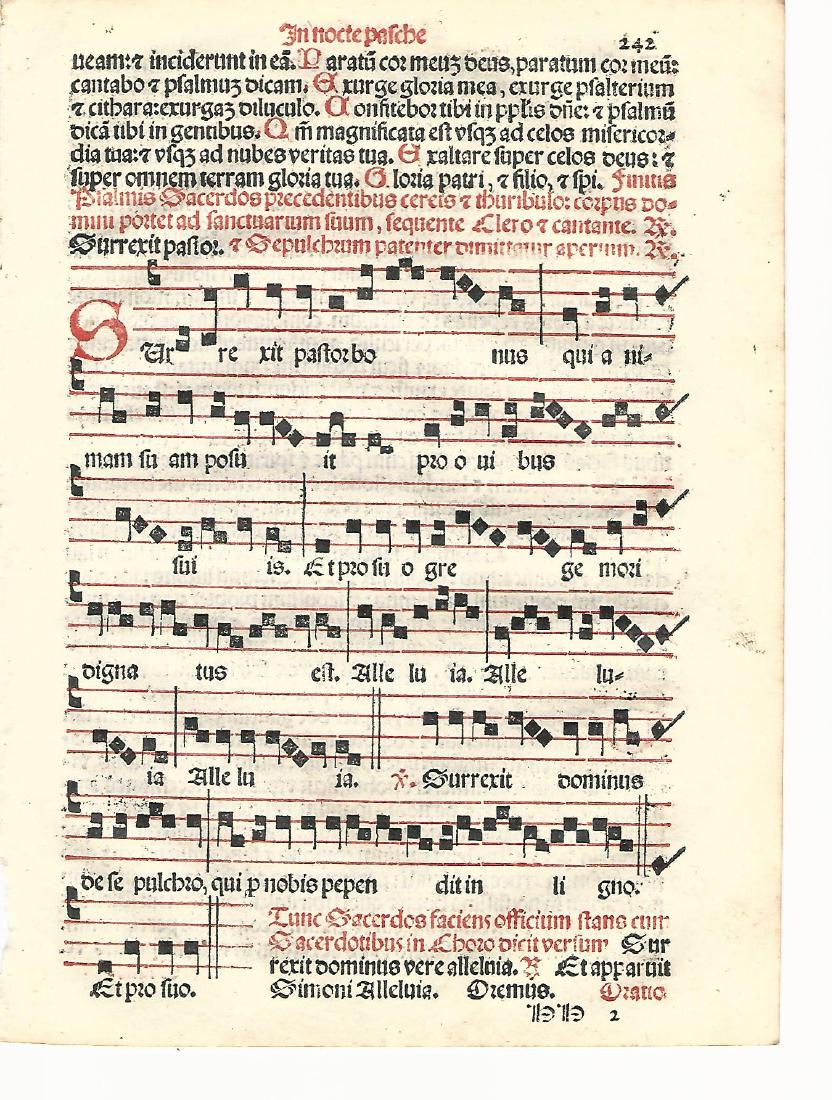 In nocte pasche 242
ueam:⁊ inciderunt in eā. Paratū cor meuʒ deus, paratum cor meū:
cantabo ⁊ psalmuʒ dicam. Exurge gloria mea, exurge psalterium
⁊ cithara:exurgaʒ diluculo. Confitebor tibi in pplis dn̄e: ⁊ psalmū
dicā tibi in gentibus. Qm̄ magnificata est vsqʒ ad celos misericor-
dia tua:⁊ vsqʒ ad nubes veritas tua. Exaltare super celos deus: ⁊
super omnem terram gloria tua. Gloria patri, ⁊ filio, ⁊ spi. Finitis
Psalmis Sacerdos precedentibus cereis ⁊ thuribulo: corpus do-
mini portet ad sanctuarium suum, sequente Clero ⁊ cantante. ℞.
Surrexit pastor. ⁊ Sepulchrum patenter dimittatur apertum. ℞.
SUr re xit pastor bo nus qui a ni-
mam su am posu it pro o ui bus
sui is. Et pro su o gre ge mori
digna tus est. Alle lu ia. Alle lu-
ia Alle lu ia. ℣. Surrexit dominus
de se pulchro, qui p nobis pepen dit in li gno.
Et pro suo.
Tunc Sacerdos faciens officium stans cum
Sacerdotibus in Choro dicit versum Sur
rexit dominus vere alleluia. ℟ Et apparuit
Simoni Alleluia. Oremus. Oratio
HH 2